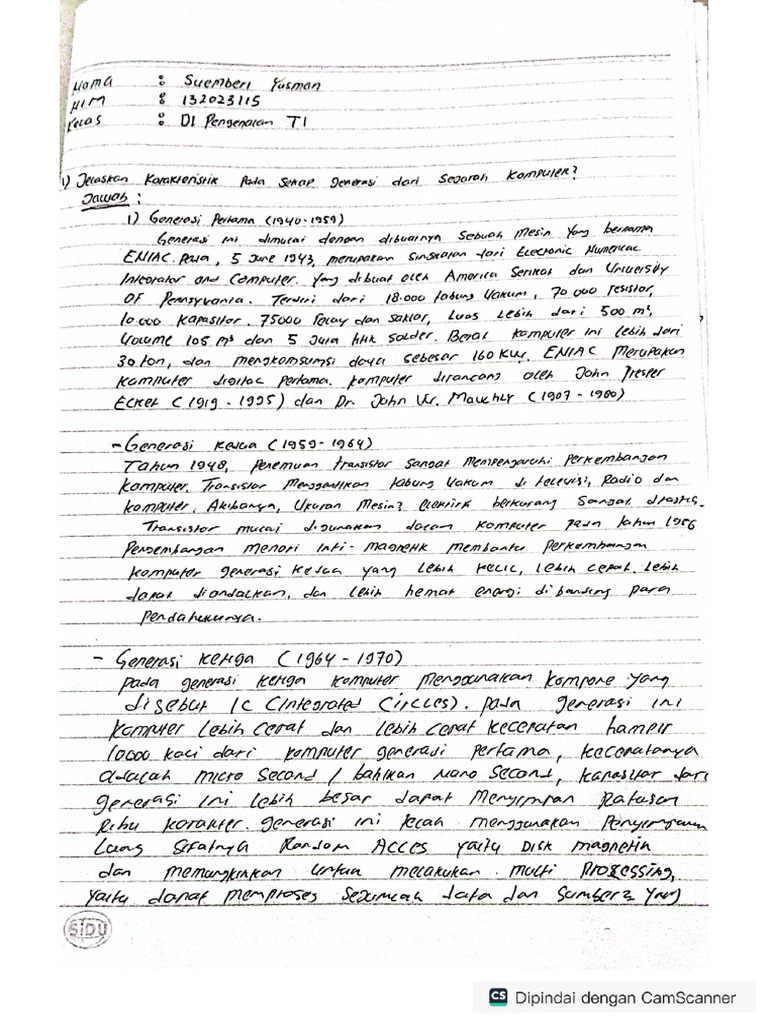 Nama : Suemberi Yusman
NIM : 132023115
Kelas : D1 Pengenalan TI
1) Jelaskan Karakteristik Pada Setiap generasi dari Sejarah Komputer?
Jawab :
1) Generasi Pertama (1940-1959)
Generasi ini dimulai dengan dibuatnya Sebuah Mesin Yang bernama
ENIAC. Pada, 5 June 1943, merupakan Singkatan dari Electronic Numerical
Integrator and Computer. Yang dibuat oleh America Serikat dan University
OF Pennsyvania. Terdiri dari 18.000 tabung Vakum, 70.000 resistor,
10.000 Kapasitor. 75000 relay dan saklar, Luas Lebih dari 500 m²,
Volume 105 m³ dan 5 Juta titik Solder. Berat Komputer ini lebih dari
30 ton, dan mengkomsumsi daya sebesar 160 KW. ENIAC Merupakan
Komputer digital Pertama. Komputer dirancang oleh John Presper
Ecket (1919 - 1995) dan Dr. John W. Mauchly (1907 - 1980)
- Generasi Kedua (1959-1964)
Tahun 1948, Penemuan transistor Sangat Mempengaruhi Perkembangan
Komputer. Transistor Menggantikan tabung Vakum di televisi, Radio dan
Komputer, Akibanya, Ukuran Mesin2 elektrik berkurang Sangat drastis.
Transistor mulai digunakan dalam Komputer pada tahun 1956
Pengembangan Memori Inti-magnetik membantu Perkembangan
Komputer generasi Kedua yang Lebih Kecil, Lebih Cepat. Lebih
dapat diandalkan, dan Lebih hemat energi dibanding para
Pendahulunya.
- Generasi Ketiga (1964-1970)
Pada generasi Ketiga Komputer Menggunakan Kompone yang
disebut IC (Integrated Circles). Pada generasi ini
Komputer Lebih Cepat dan Lebih Cepat Kecepatan hampir
10000 Kali dari Komputer generasi Pertama, Kecepatanya
adalah micro Second / bahkan Nano Second, Kapasitor dari
generasi ini lebih besar dapat Menyimpan Ratusan
Ribu Karakter. generasi ini telah menggunakan Penyimpanan
Luang Sifatnya Random Acces yaitu DISK magnetin
dan memungkinkan Untuk melakukan multi Progessing,
Yaitu dapat memproses Sejumlah data dan Sumber2 Yang
SiDU
CS Dipindai dengan CamScanner